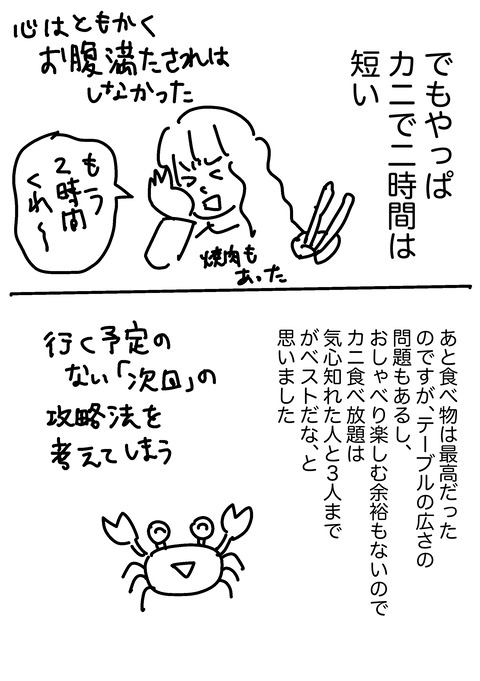 でもやっぱ
カニで二時間は
短い
心はともかく
お腹満たされは
しなかった
もう
2時間
くれ〜
焼肉も
あった
あと食べ物は最高だった
のですが、テーブルの広さの
問題もあるし、
おしゃべり楽しむ余裕もないので
カニ食べ放題は
気心知れた人と3人まで
がベストだな、と
思いました
行く予定の
ない「次回」の
攻略法を
考えてしまう